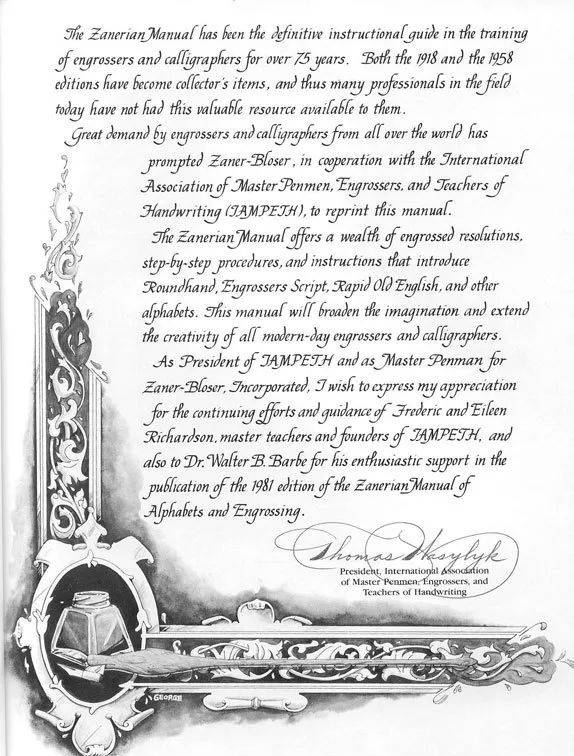 The Zanerian Manual has been the definitive instructional guide in the training
of engrossers and calligraphers for over 75 years. Both the 1918 and the 1958
editions have become collector's items, and thus many professionals in the field
today have not had this valuable resource available to them.
Great demand by engrossers and calligraphers from all over the world has
prompted Zaner-Bloser, in cooperation with the International
Association of Master Penmen, Engrossers, and Teachers of
Handwriting (IAMPETH), to reprint this manual.
The Zanerian Manual offers a wealth of engrossed resolutions,
step-by-step procedures, and instructions that introduce
Roundhand, Engrossers Script, Rapid Old English, and other
alphabets. This manual will broaden the imagination and extend
the creativity of all modern-day engrossers and calligraphers.
As President of IAMPETH and as Master Penman for
Zaner-Bloser, Incorporated, I wish to express my appreciation
for the continuing efforts and guidance of Frederic and Eileen
Richardson, master teachers and founders of IAMPETH, and
also to Dr. Walter B. Barbe for his enthusiastic support in the
publication of the 1981 edition of the Zanerian Manual of
Alphabets and Engrossing.
Thomas Wasylyk
President, International Association
of Master Penmen, Engrossers, and
Teachers of Handwriting
GEORGE